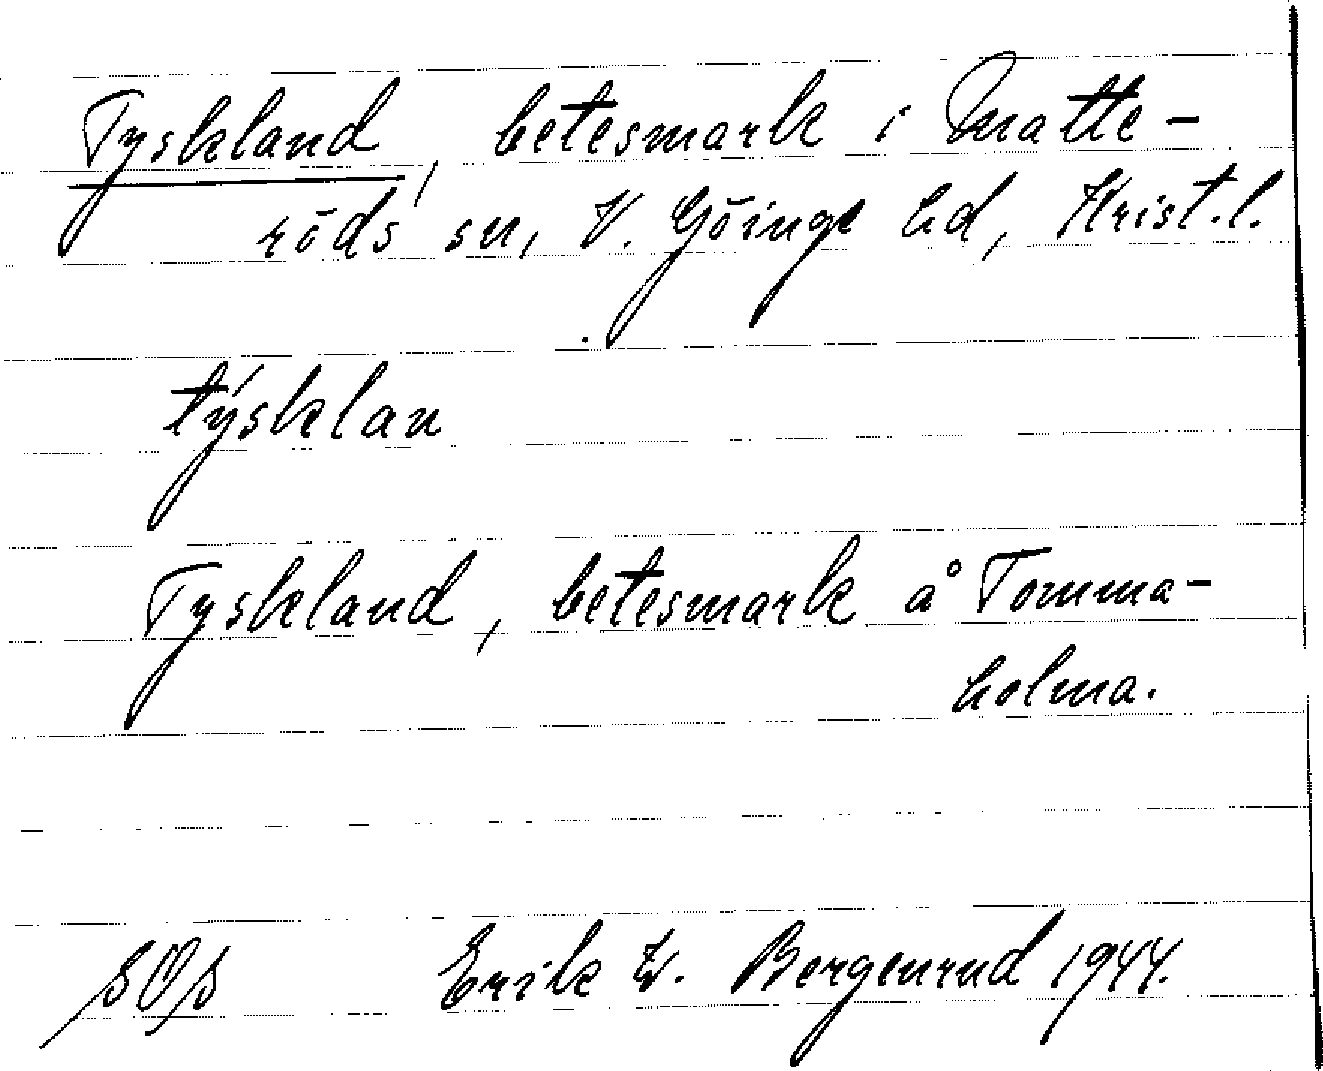 Tyskland, betesmark i Matte-
röds sn, V. Göinge hd, Krist.l.
týsklan
Tyskland, betesmark å Tomma-
holma.
SOS Erik W. Bergenrud 1944.